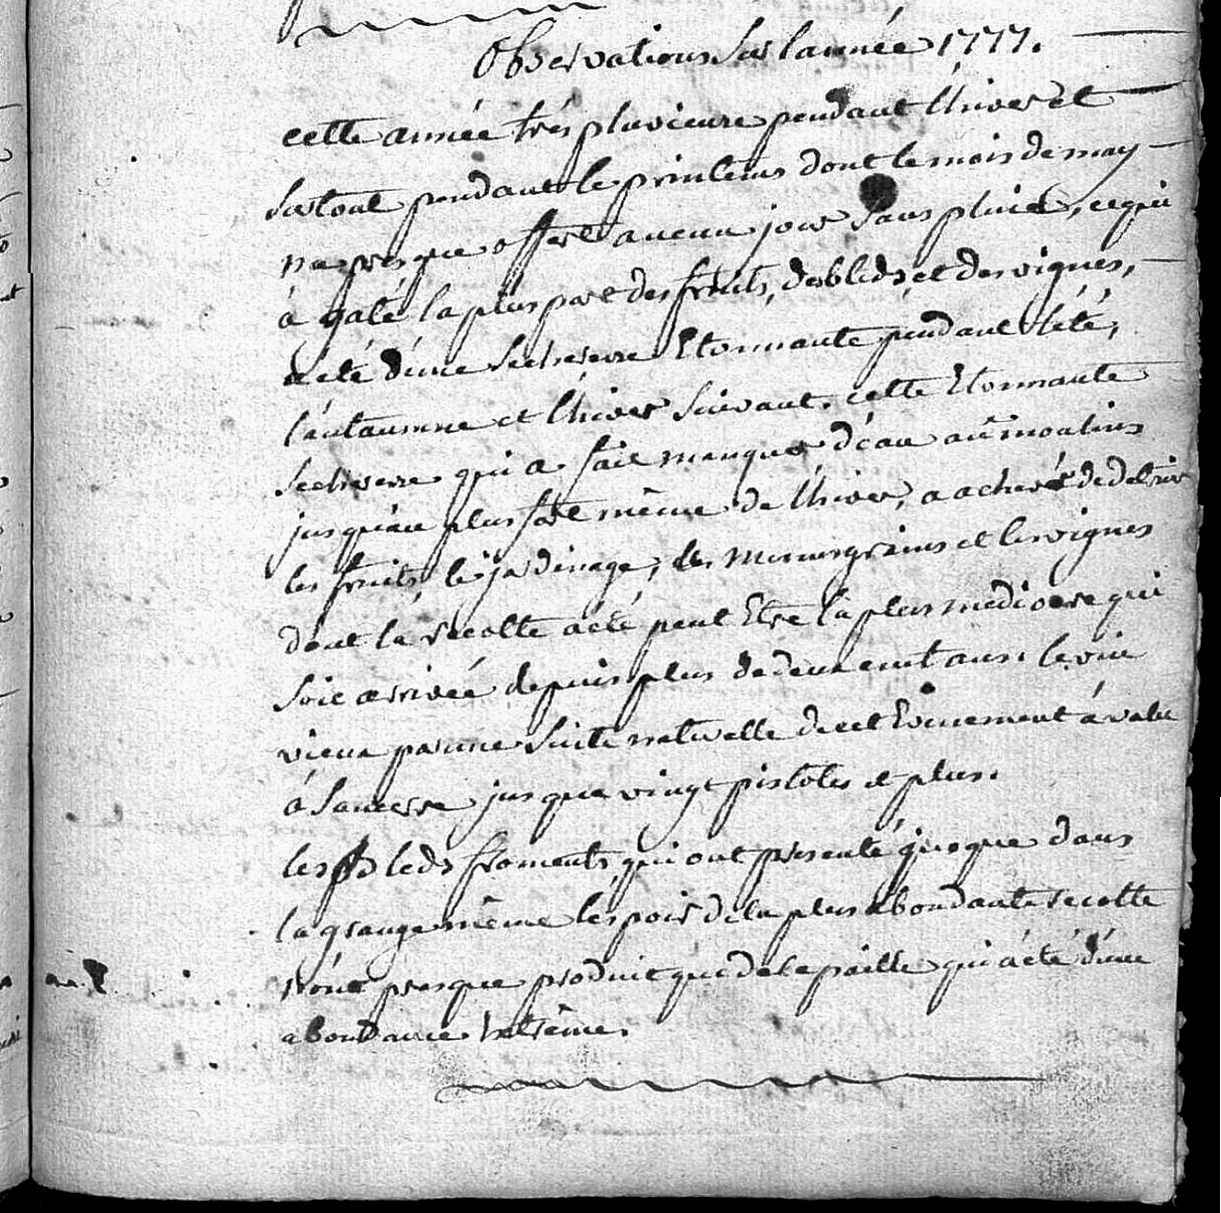 Observations Sur lannée 1777.
cette année trés pluvieuse pendant l'hiver et
Surtout pendant le printems dont le mois de may
na presque offert aucun jour Sans pluie, cequi
à gaté la plus part des fruits, des bleds et des vignes,
a été d'une Secheresse Etonnante pendant l'été,
l'autaumne et l'hiver Suivant. cette Etonnante
Secheresse qui a fait manquer d'eau au moulins
jusqu'au plus fort même de l'hiver, a achevé de detruire
les fruits, le jardinage, les menus grains et les vignes
dont la récolte a été peut Etre la plus mediocre qui
Soit arrivée depuis plus de deux cent ans. le vin
vieux par une Suite naturelle de cet Evenement à valu
à Sancerre jusque vingt pistoles et plus.
les Bleds froments qui ont presenté jusque dans
la grange même l'espoir de la plus abondante recolte
n'ont presque produit que de la paille qui a été d'une
abondance Extrême.